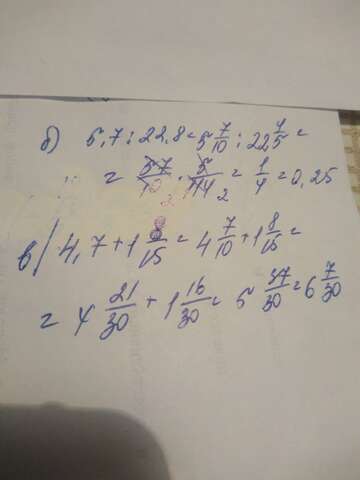 б) 5,7 : 22,8 = 5 7/10 : 22 4/5 =
= 57/10 · 5/114 2 = 1/4 = 0,25
в) 4,7 + 1 8/15 = 4 7/10 + 1 8/15 =
= 4 21/30 + 1 16/30 = 5 37/30 = 6 7/30